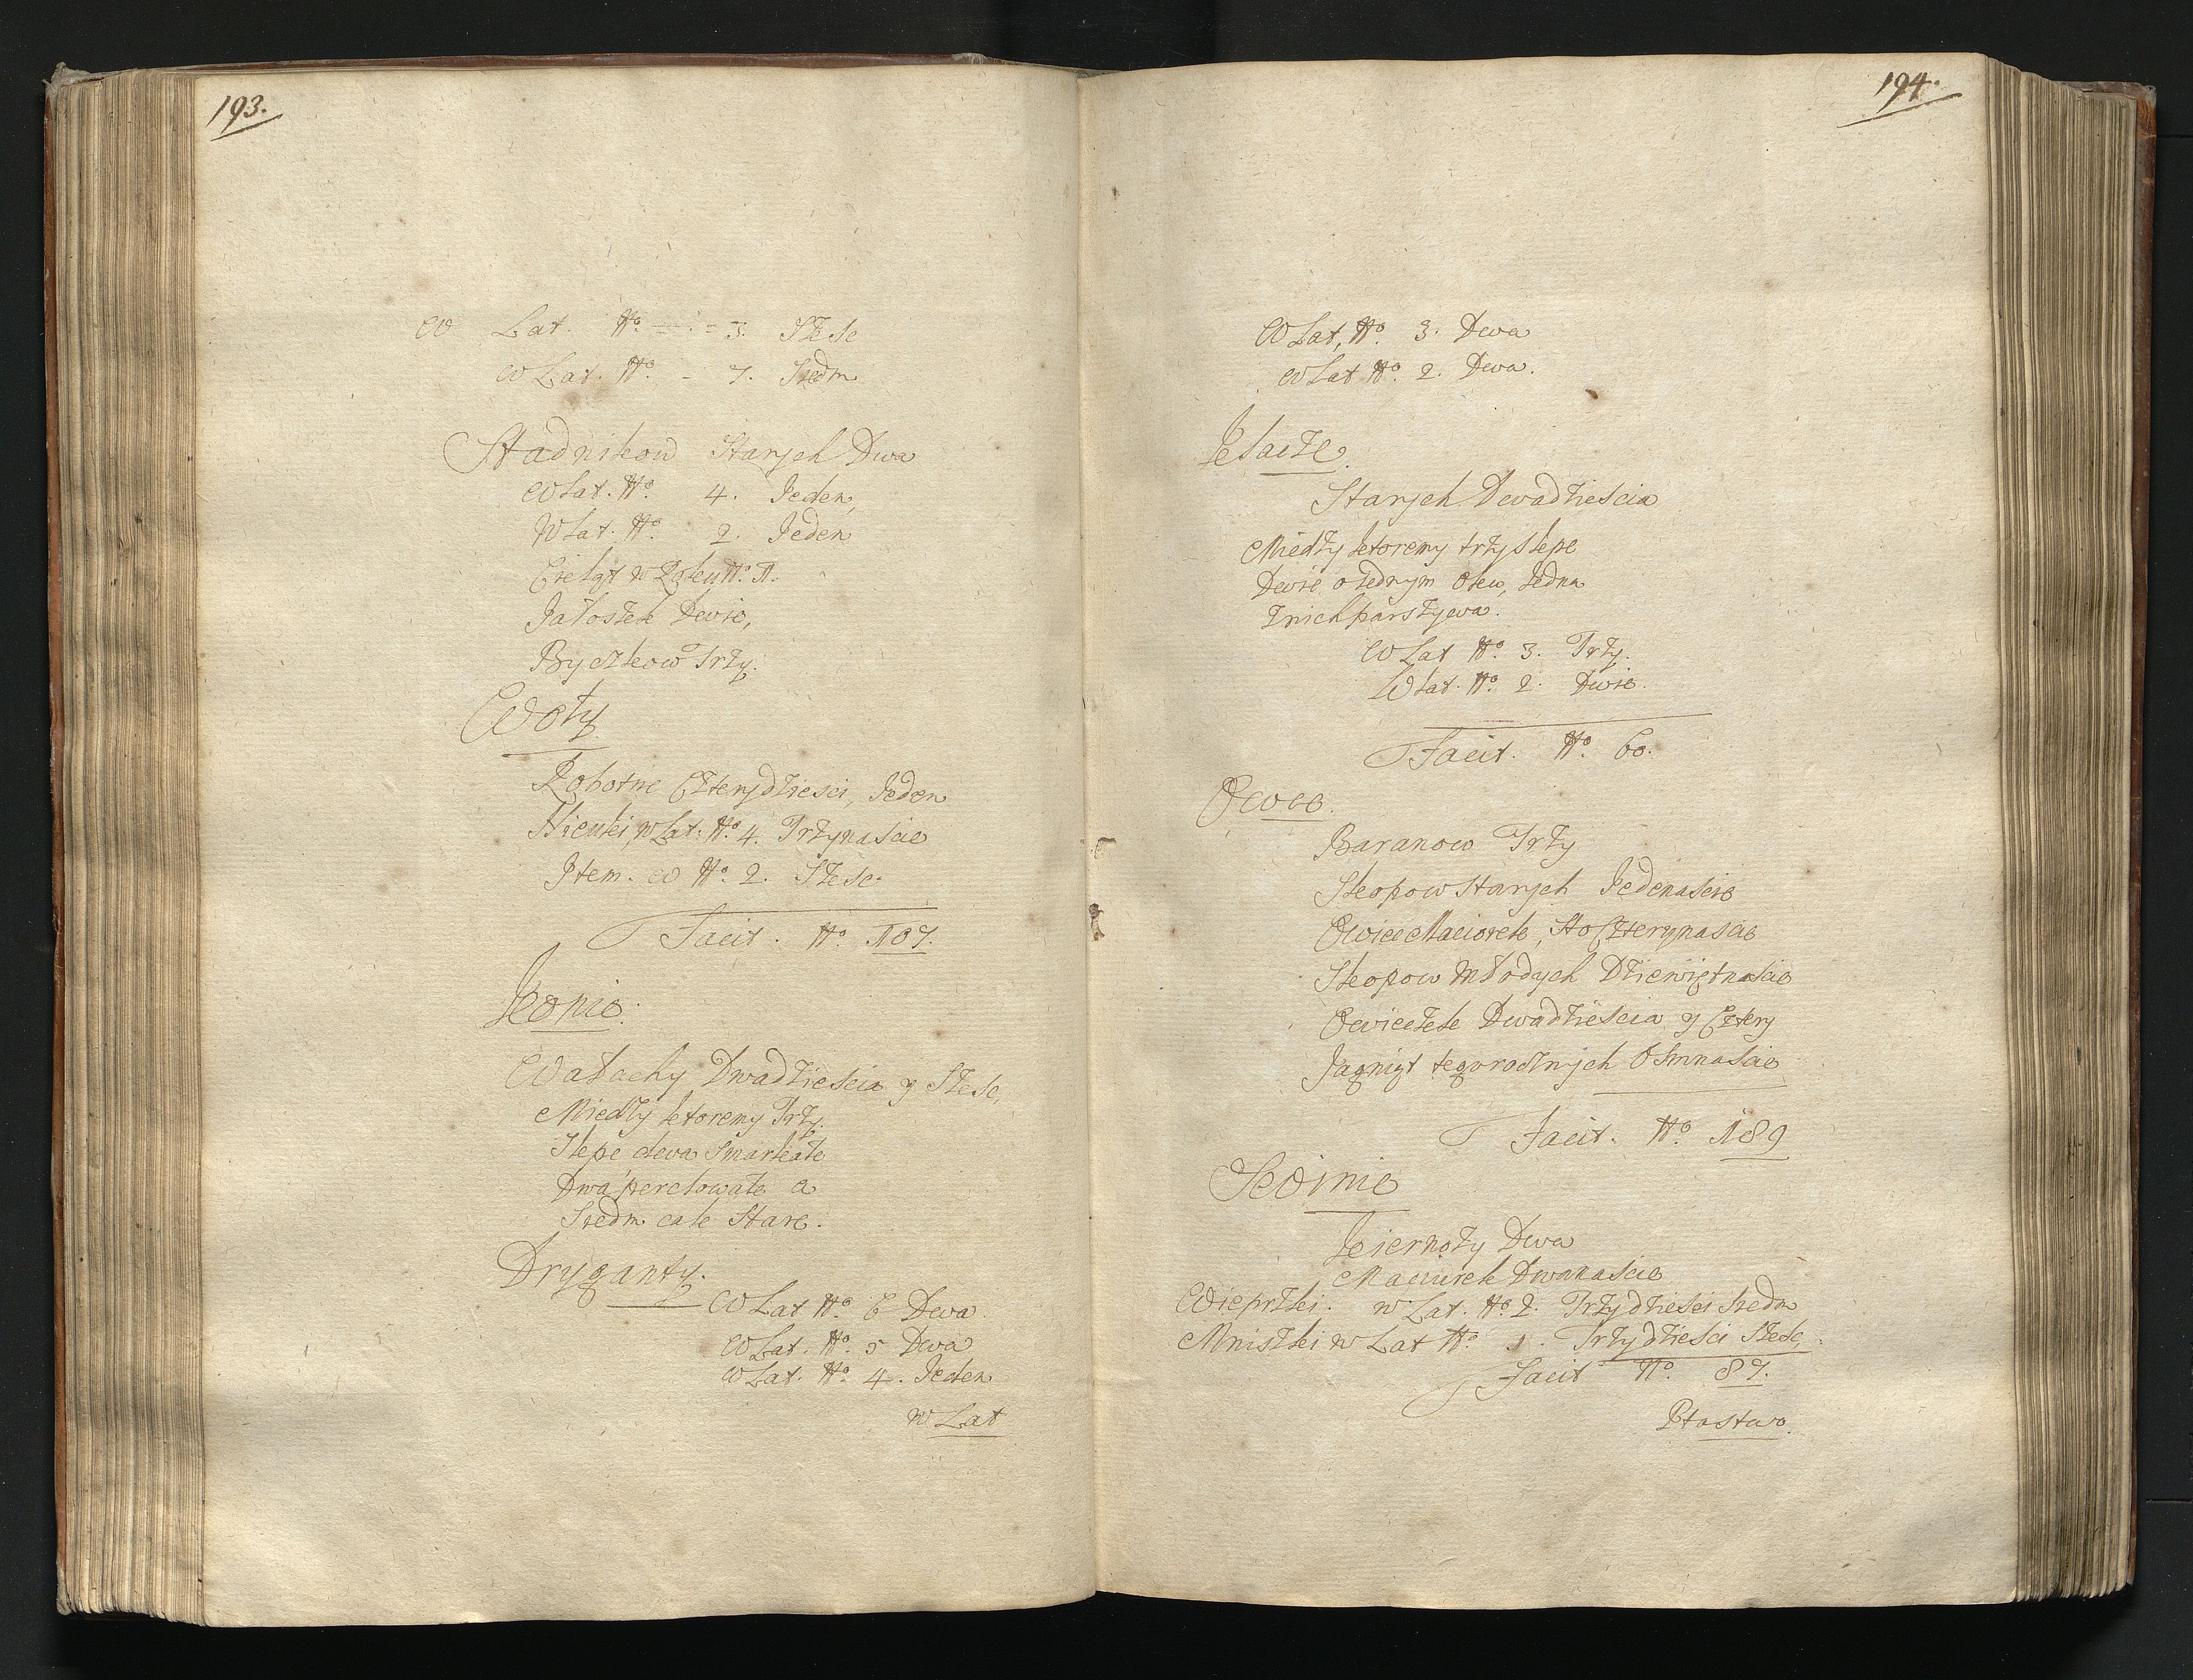 193.
W Lat. No. - - - 3. Szesc
W Lat. No. - 7. Siedm
Stadnikow Starych Dwa
W Lat. No. 4. Jeden,
W Lat. No. 2. Jeden
Cieląt w Roku No. 1.
Jałoszek Dwie,
Byczkow Trzy.
Woły
Robotne Czterydziesci, Jeden
Nieuki, w Lat. No. 4. Trzynascie
Item. w No. 2. Szesc.
Facit. No. 107.
Konie.
Wałachy Dwadziescia y Szesc,
Miedzy ktoremy Trzy
Slepe dwa Smarkate
Dwa perclowate a
Siedm cale Stare.
Dryganty.
W Lat No. 6 Dwa.
W Lat. No. 5 Dwa
W Lat. No. 4. Jeden
w Lat
194.
W Lat, No. 3. Dwa
W Lat No. 2. Dwa.
Klacze.
Starych Dwadziescia
Miedzy ktoremy trzy slepe
Dwie o Jednym Oku, Jedna
Znich parszywa.
W Lat No. 3. Trzy.
W Lat. No. 2. Dwie.
Facit. No. 60.
Owce.
Baranow Trzy
Skopow Starych Jedenascie
Owiec Maciorek, Sto Czterynascie
Skopow Młodych Dziewiętnascie
Owieczek Dwadziescia y Cztery
Jagniąt tegorocznych Osmnascie
Facit. No. 189
Swinie
Kiernozy Dwa
Maciurek Dwanascie
Wieprzki. w Lat. No. 2. Trzydziesci Siedm
Mniszki w Lat No. 1. Trzydziesci Szesc,
Facit No. 87.
Ptastwo.